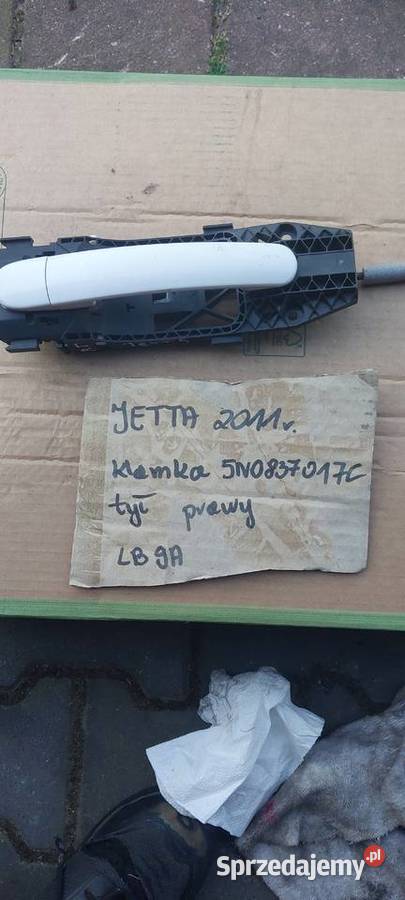 JETTA 2011r.
klamka 5N0837017C
tył prawy
LB9A
Sprzedajemy.pl